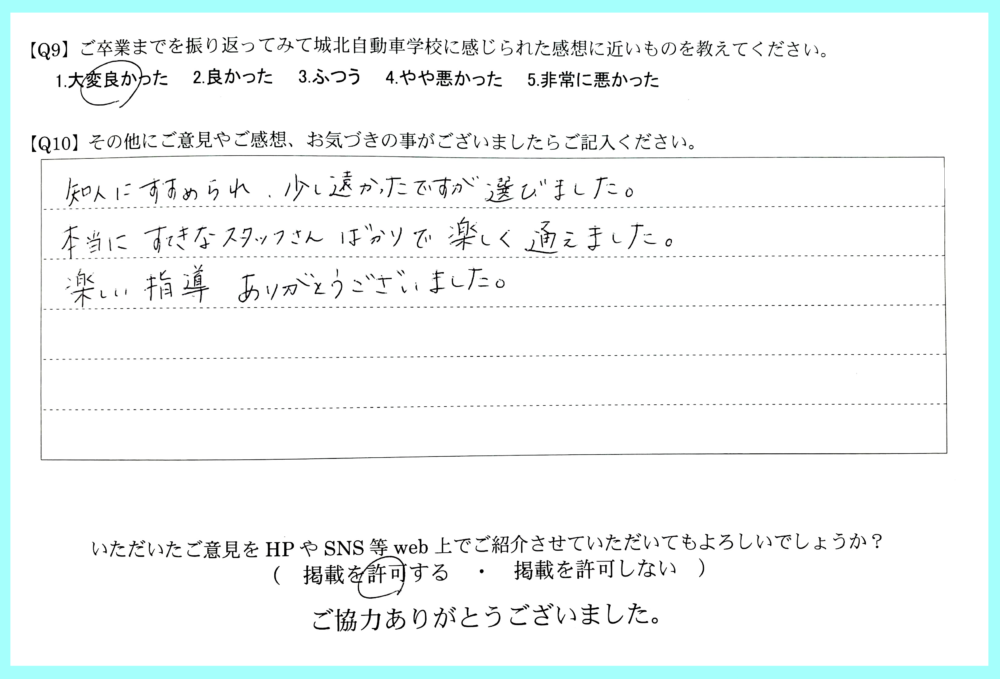 【Q9】ご卒業までを振り返ってみて城北自動車学校に感じられた感想に近いものを教えてください。
1.大変良かった 2.良かった 3.ふつう 4.やや悪かった 5.非常に悪かった
【Q10】その他にご意見やご感想、お気づきの事がございましたらご記入ください。
知人にすすめられ、少し遠かったですが選びました。
本当にすてきなスタッフさんばかりで楽しく通えました。
楽しい指導ありがとうございました。
いただいたご意見をHPやSNS等web上でご紹介させていただいてもよろしいでしょうか？
（ 掲載を許可する ・ 掲載を許可しない ）
ご協力ありがとうございました。